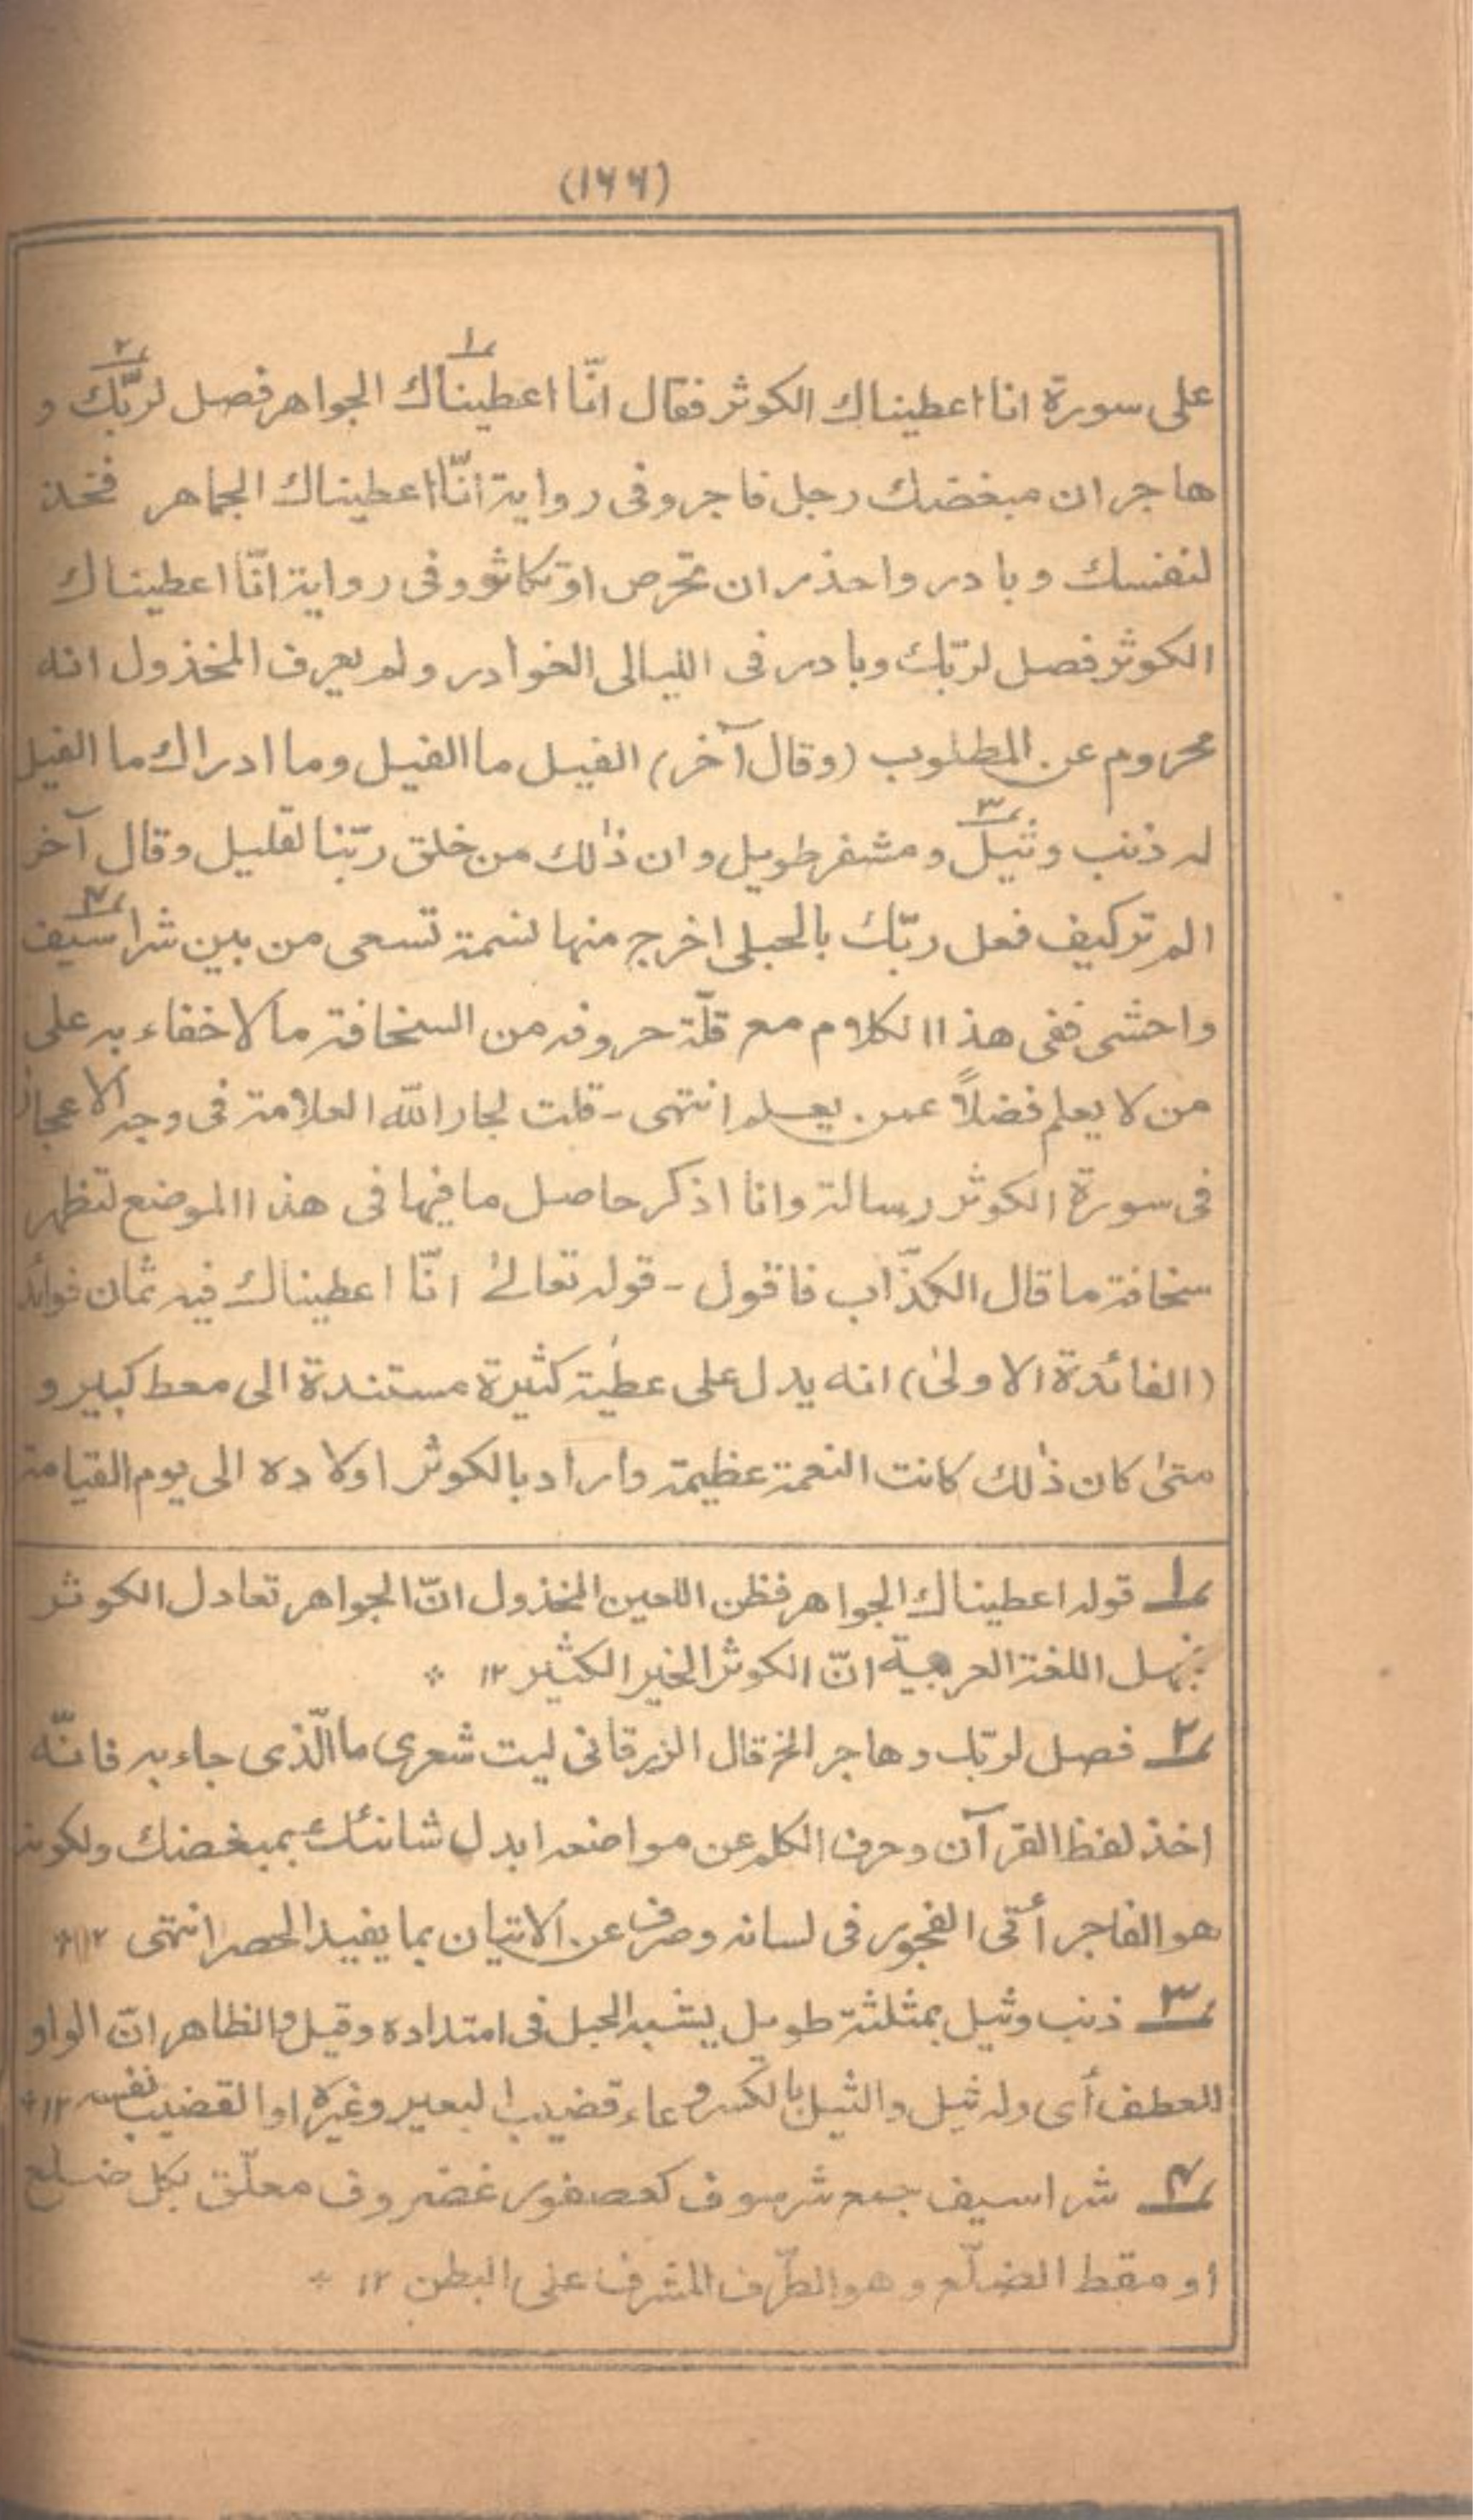 (١٦٦)
على سورة انا اعطيناك الكوثر فقال انّا اعطيناك الجواهر فصل لربّك و
هاجر ان مبغضك رجل فاجر وفى رواية انّا اعطيناك الجماهر فخذ
لنفسك وبادر واحذر ان تحرص او تكاثر وفى رواية انّا اعطيناك
الكوثر فصل لربّك وبادر فى الليالى الغوادر ولم يعرف المخذول انه
محروم عن المطلوب (وقال آخر) الفيل ما الفيل وما ادراك ما الفيل
له ذنب وثيل ومشفر طويل وان ذٰلك من خلق ربّنا لقليل وقال آخر
الم تر كيف فعل ربّك بالحبلى اخرج منها نسمة تسعى من بين شراسيف
واحشى ففى هذا الكلام مع قلّة حروفه من السخافة مالا خفاء به على
من لا يعلم فضلاً عمن يعلم انتهى - قلت لجار الله العلامة فى وجه الاعجاز
فى سورة الكوثر رسالة وانا اذكر حاصل ما فيها فى هذا الموضع لتظهر
سخافة ما قال الكذّاب فاقول - قوله تعالىٰ انّا اعطيناك فيه ثمان فوائد
(الفائدة الاولىٰ) انه يدل على عطية كثيرة مستندة الى معط كبير و
متىٰ كان ذٰلك كانت النعمة عظيمة واراد بالكوثر اولاده الى يوم القيامة
١ قوله اعطيناك الجواهر فظن اللعين المخذول انّ الجواهر تعادل الكوثر
بجهل اللغة العربية انّ الكوثر الخير الكثير ١٢ *
٢ فصل لربّك وهاجر الخ قال الزرقانى ليت شعرى ما الّذى جاء به فانّه
اخذ لفظ القرآن وحرف الكلم عن مواضعه ابدل شانئك بمبغضك ولكونه
هو الفاجر أتى الفجور فى لسانه وصرف عن الاتيان بما يفيد الحصر انتهى ١٢ *
٣ ذنب وثيل بمثلثة طويل يشبه الحبل فى امتداده وقيل والظاهر انّ الواو
للعطف أى وله ثيل والثيل بالكسر وعاء قضيب البعير وغيره او القضيب نفسه ١٢ *
٤ شراسيف جمع شرسوف كعصفور غضروف معلّق بكل ضلع
او مقط الضلّع وهو الطّرف المشرف على البطن ١٢ *